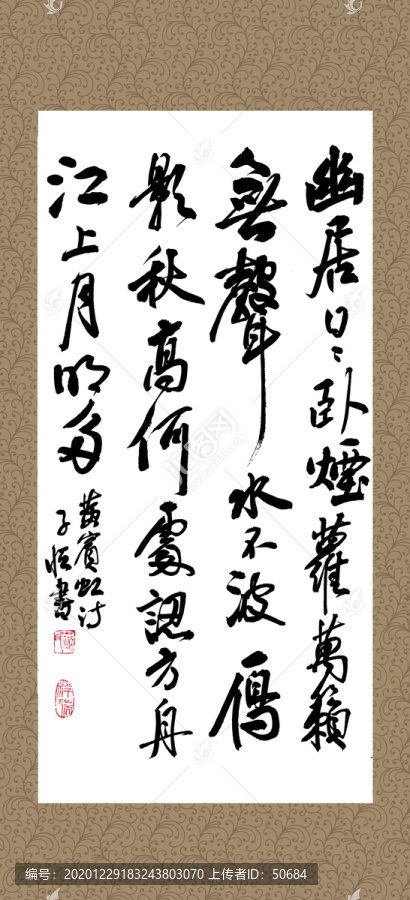 幽居日〻卧煙蘿萬籟
無聲水不波雁
影秋高何處認方舟
江上月明多
黄賓虹诗
子恒書
编号：20201229183243803070 上传者ID：50684